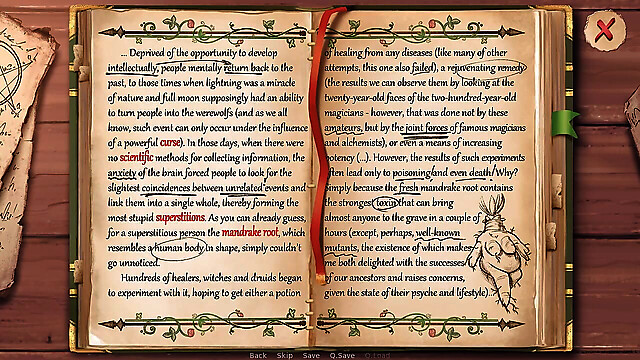 ... Deprived of the opportunity to develop
intellectually, people mentally return back to the
past, to those times when lightning was a miracle
of nature and full moon supposingly had an ability
to turn people into the werewolfs (and as we all
know, such event can only occur under the influence
of a powerful curse). In those days, when there were
no scientific methods for collecting information, the
anxiety of the brain forced people to look for the
slightest coincidences between unrelated events and
link them into a single whole, thereby forming the
most stupid superstitions. As you can already guess,
for a superstitious person the mandrake root, which
resembles a human body in shape, simply couldn't
go unnoticed.
Hundreds of healers, witches and druids began
to experiment with it, hoping to get either a potion
of healing from any diseases (like many of other
attempts, this one also failed), a rejuvenating remedy
(the results we can observe them by looking at the
twenty-year-old faces of the two-hundred-year-old
magicians - however, that was done not by these
amateurs, but by the joint forces of famous magicians
and alchemists), or even a means of increasing
potency (...). However, the results of such experiments
often lead only to poisoning and even death! Why?
Simply because the fresh mandrake root contains
the strongest toxin that can bring
almost anyone to the grave in a couple of
hours (except, perhaps, well-known
mutants, the existence of which makes
me both delighted with the successes
of our ancestors and raises concerns,
given the state of their psyche and lifestyle)...
Back Skip Save Q.Save Q.Load